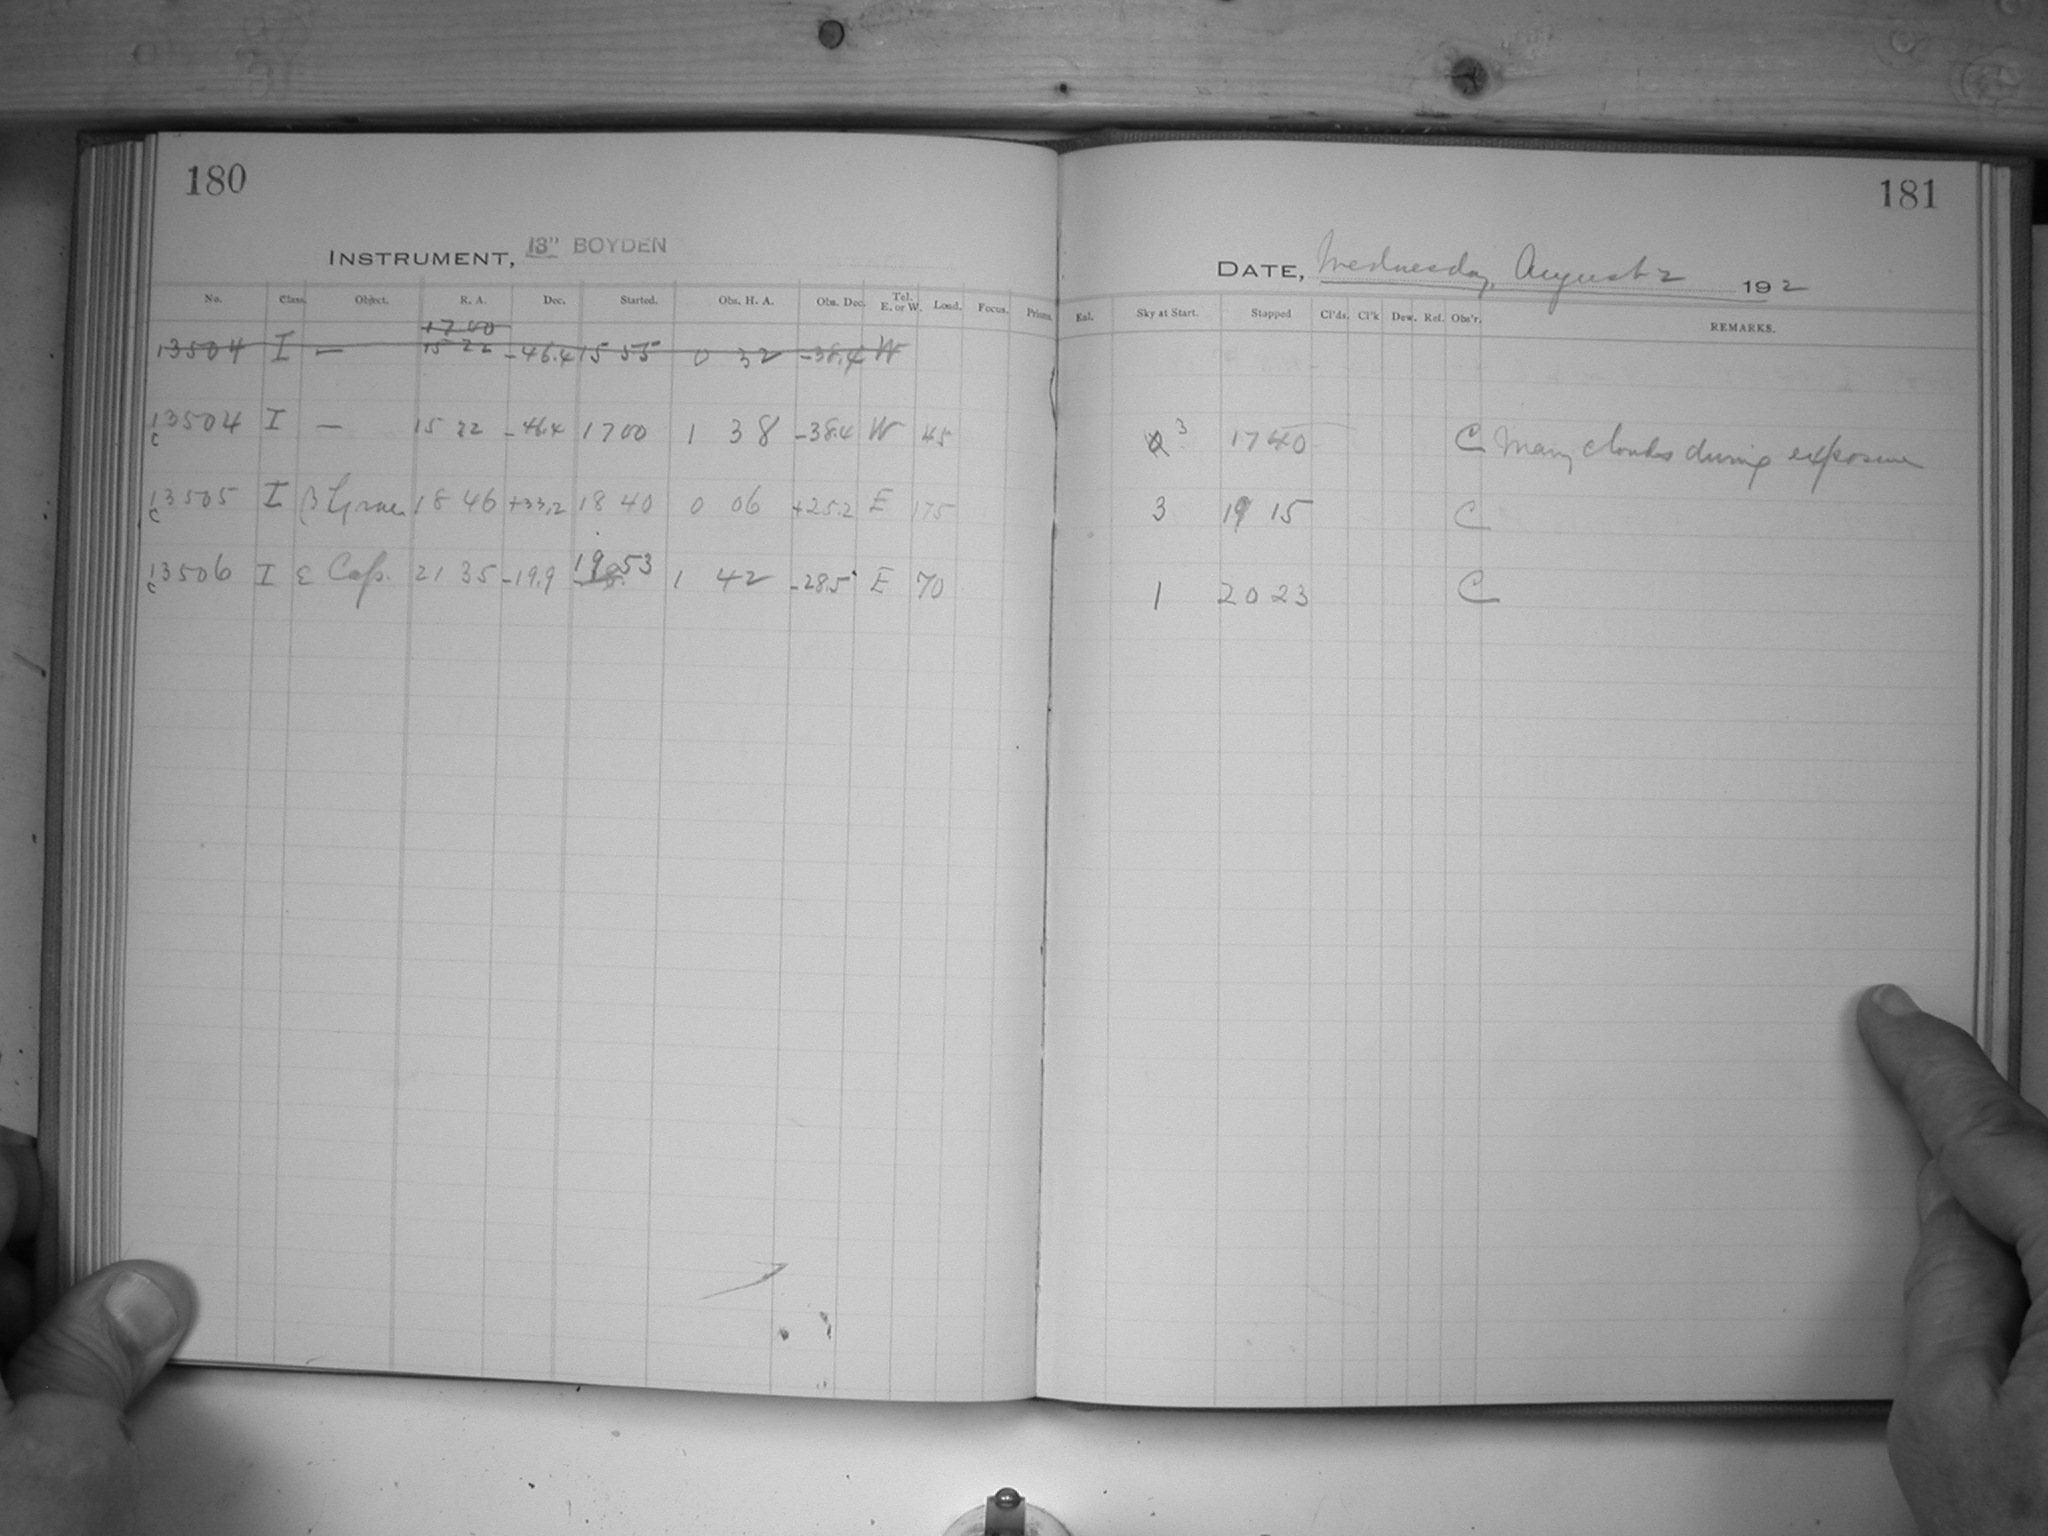 180
INSTRUMENT, 13" BOYDEN
No. Class. Object. R. A. Dec. Started. Obs. H. A. Obs. Dec. Tel. E. or W. Load. Focus. Prisms.
1700
13504 I — 15 22 -46.4 15 55 0 32 -38.4 W
13504 I — 15 22 -46.4 1700 1 38 -38.4 W 45
c
13505 I β Lyrae 18 46 +33.2 18 40 0 06 +25.2 E 175
c
13506 I ε Cap. 21 35 -19.9 19 53 1 42 -28.5 E 70
c
181
DATE, Wednesday, August 2 192 2
Eal. Sky at Start. Stopped Cl'ds. Cl'k Dew. Ref. Obs'r. REMARKS.
3 1740 C Many clouds during exposure
3 19 15 C
1 20 23 C